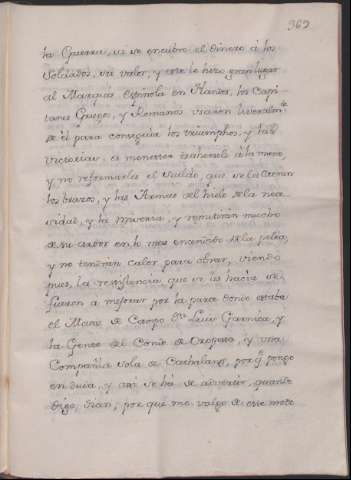 369
la Guerra, si se encubre el dinero á los
Soldados, su valor, y este le hizo gran lugar
al Marques Espinola en Flandes, los Capi
tanes Griegos, y Romanos usaron liveralm.te
de él para conseguir los triumphos, y las
victorias, es menester echarsele á la mano,
y no refor el sueldo, que se la
los brazos, y las Armas del hielo de la nece
sidad, y la miseria, y remitirán mucho
de su ardor en lo mas encendido de la pelea,
y no tendrán calor para obrar, viendo
pues, la resistencia que se les hacia se
fueron a mejorar por la parte donde estaba
el Mase de Campo D.n Luis Garnica, y
la Gente del Conde de Oropesa, y una
Compañia sola de Cathalans, por q.e pongo
en duda, y así se há de advertir, quando
digo, eran, por que me valgo de este modo